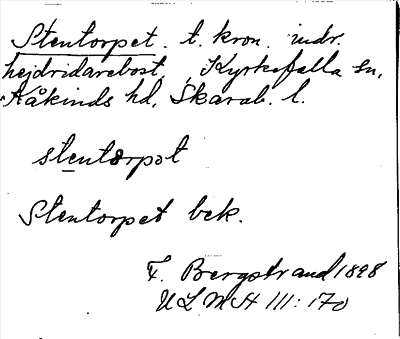 Stentorpet. t. kron. indr.
hejdridarebost., Kyrkefalla sn,
Kåkinds hd, Skarab. l.
stentorpət
Stentorpet bek.
F. Bergstrand 1898
ULMA III: 170